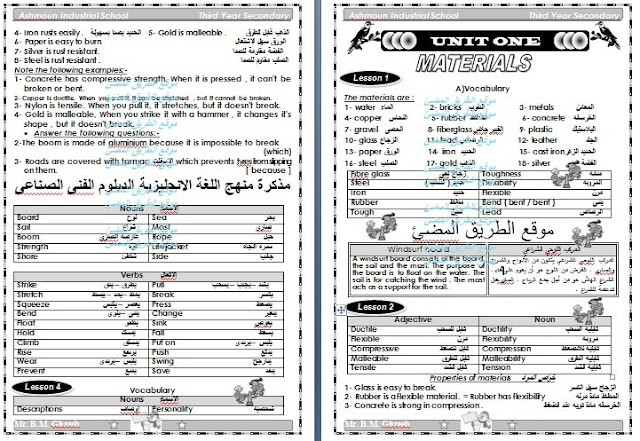 Ashmoun Industrial School Third Year Secondary
4- Iron rusts easily . الحديد يصدأ بسهولة 5- Gold is malleable . الذهب قابل للطرق
6- Paper is easy to burn. الورق سهل الاشتعال
7- Silver is rust resistant. الفضة مقاومة للصدأ
8- Steel is rust resistant . الصلب مقاوم للصدأ
Note the following examples:-
1- Concrete has compressive strength. When it is pressed , it can't be
broken or bent.
2- Copper is ductile. When you pull it, it can be stretched , but it cannot be broken.
3- Nylon is tensile. When you pull it, it stretches, but it doesn't break.
4- Gold is malleable, When you strike it with a hammer , it changes it's
shape , but it doesn't break.
• Answer the following questions:-
2-The boom is made of aluminium because it is impossible to break
(which)
3- Roads are covered with tarmac which prevents tyres from slipping
on them. [ because ]
مذكرة منهج اللغة الانجليزية الدبلوم الفنى الصناعى
Nouns الأسماء
Board لوح Sea بحر
Sail شراع Mast
Boom Rope حبل
Strength قوة Life jacket سترة النجاة
Shore شاطئ Side جانب
Verbs الأفعال
Strike يطرق – يدق Pull يشد – يجذب – يسحب
Stretch Break يكسر
Squeeze يعصر – يكبس Press يضغط
Bend يثنى – يلوى Change يغير
Float يطفو Sink
Hold يمسك Fall
Climb يتسلق Put on يرتدى
Rise يرتفع Push يدفع
Wear يرتدى Swing يتأرجح
Prevent يمنع Save
Lesson 4
Vocabulary
Nouns الأسماء
Descriptions Personality شخصية
Mr. B.M
Ashmoun Industrial School Third Year Secondary
UNIT ONE
MATERIALS
Lesson 1
A)Vocabulary
موقع الطريق المضئ
The materials are :
1- water الماء 2- bricks الطوب 3- metals المعادن
4- copper النحاس 5- rubber المطاط 6- concrete الخرسانة
7- gravel الحصى 8- fiberglass 9- plastic البلاستيك
10- glass الزجاج 11- lead الرصاص 12- leather الجلد
13- paper الورق 14- iron الحديد 15- cast iron الحديد الزهر
16- steel الصلب 17- gold الذهب 18- silver الفضة
Fibre glass زجاج ليفى Toughness متانة
Steel Flexibility المرونة
Iron حديد Flexible مرن
Rubber مطاط Bend ( bent ) يثنى
Tough متين Lead الرصاص
موقع الطريق المضئ
Windsurf board المركب اللوحى الشراعى
A windsurf board consists of the board,
the sail and the mast. The purpose of
the board is to float on the water. The
sail is for catching the wind . The mast
acts as a support for the sail.
Lesson 2
Adjective Noun
Ductile قابل للسحب Ductility قابلية السحب
Flexible مرن Flexibility مرونة
Compressive قابل للانضغاط Compressibility قابلية للانضغاط
Malleable قابل للطرق Malleability قابلية للطرق
Tensile قابل للشد Tensility قابلية الشد
Properties of materials خواص المواد
1- Glass is easy to break. الزجاج سهل الكسر
2- Rubber is a flexible material. = Rubber has flexibility المطاط مادة مرنة
3- Concrete is strong in compression .
Mr. B.M